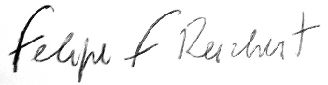 Felipe F Reichert